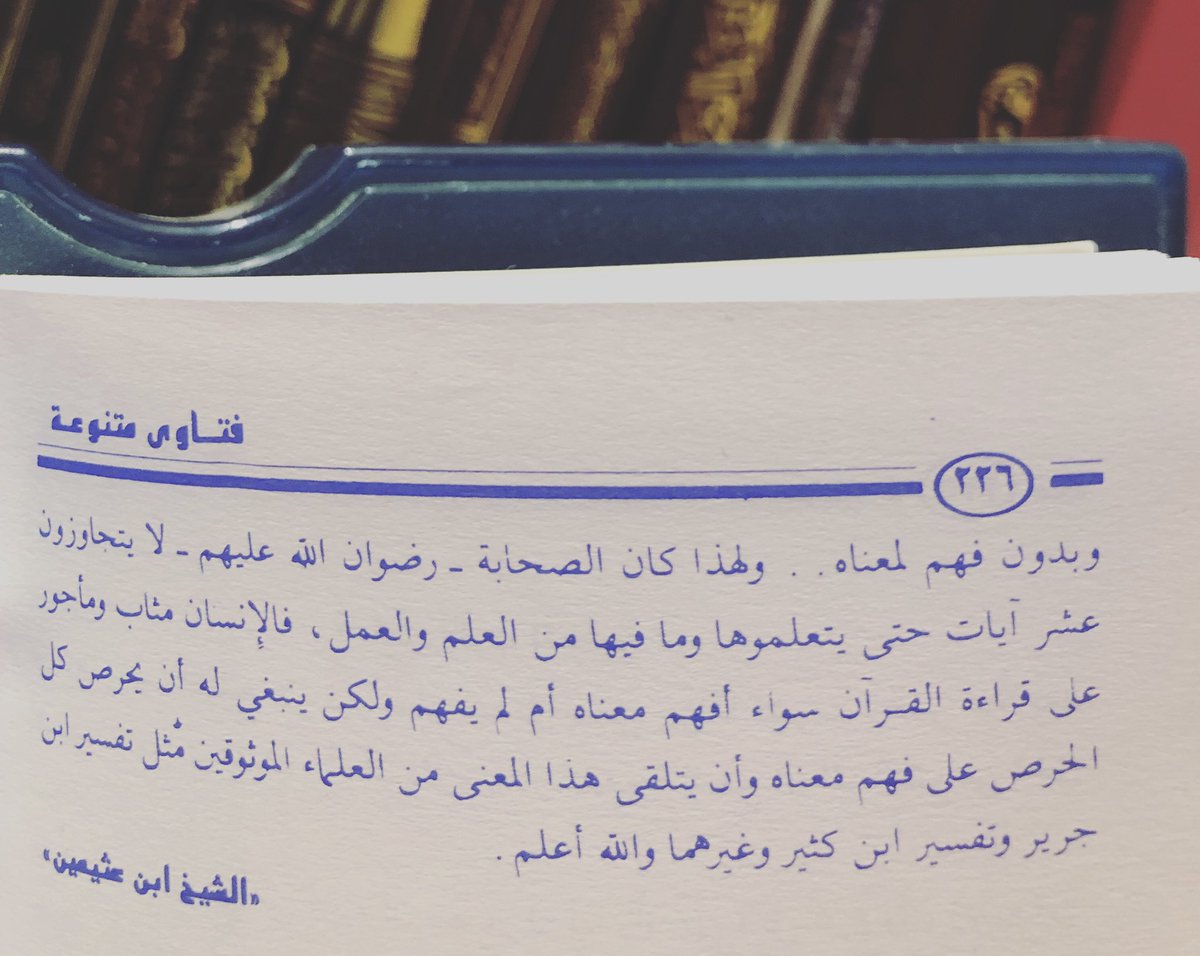 فتاوى متنوعة
٢٢٦
وبدون فهم لمعناه . . ولهذا كان الصحابة ـ رضوان الله عليهم ـ لا يتجاوزون
عشر آيات حتى يتعلموها وما فيها من العلم والعمل، فالإنسان مثاب ومأجور
على قراءة القرآن سواء أفهم معناه أم لم يفهم ولكن ينبغي له أن يحرص كل
الحرص على فهم معناه وأن يتلقى هذا المعنى من العلماء الموثوقين مثل تفسير ابن
جرير وتفسير ابن كثير وغيرهما والله أعلم .
«الشيخ ابن عثيمين»